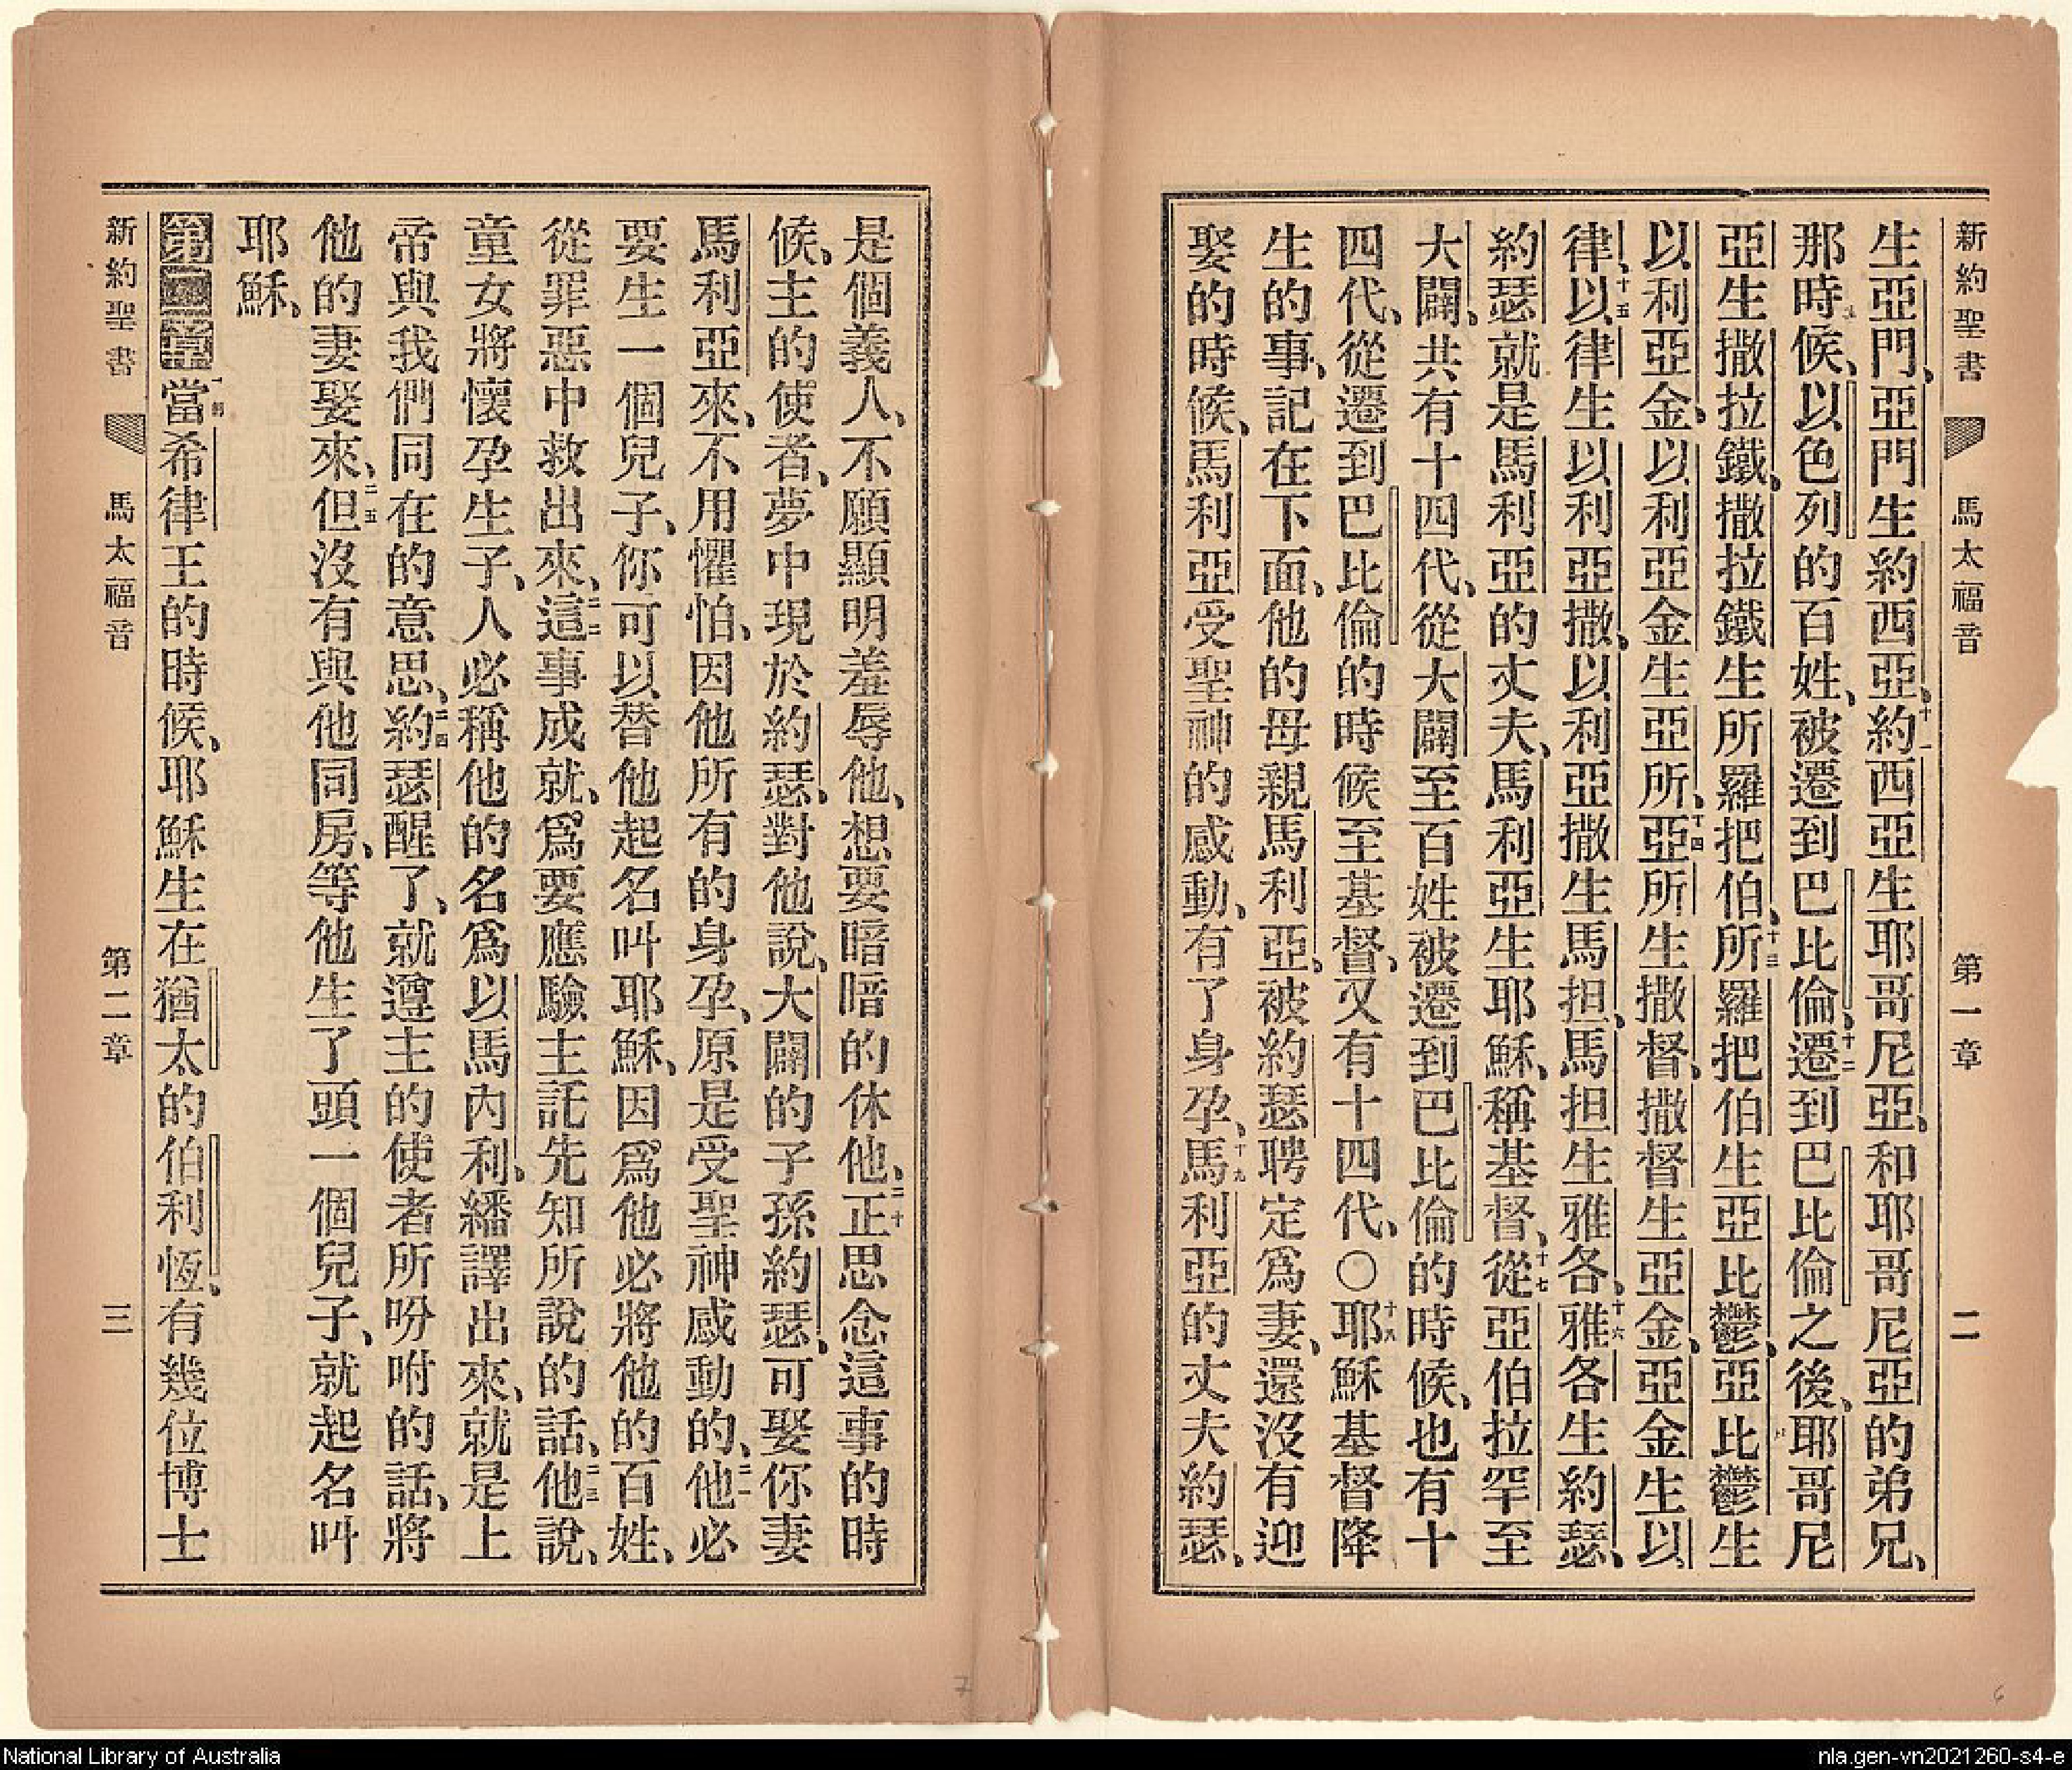 新約聖書 馬太福音 第一章 二
生亞門、亞門生約西亞、十一約西亞生耶哥尼亞、和耶哥尼亞的弟兄、
那時候、以色列的百姓、被遷到巴比倫、十二遷到巴比倫之後、耶哥尼
亞生撒拉鐵、撒拉鐵生所羅把伯、十三所羅把伯生亞比鬱、亞比鬱生
以利亞金、以利亞金生亞所、十四亞所生撒督、撒督生亞金、亞金生以
律、十五以律生以利亞撒、以利亞撒生馬担、馬担生雅各、十六雅各生約瑟、
約瑟就是馬利亞的丈夫、馬利亞生耶穌、稱基督、十七從亞伯拉罕至
大闢、共有十四代、從大闢至百姓被遷到巴比倫的時候、也有十
四代、從遷到巴比倫的時候至基督、又有十四代、〇十八耶穌基督降
生的事、記在下面、他的母親馬利亞、被約瑟聘定爲妻、還沒有迎
娶的時候、馬利亞受聖神的感動、有了身孕、十九馬利亞的丈夫約瑟、
是個義人、不願顯明羞辱他、想要暗暗的休他、二十正思念這事的時
候、主的使者、夢中現於約瑟、對他說、大闢的子孫約瑟、可娶你妻
馬利亞來、不用懼怕、因他所有的身孕、原是受聖神感動的、二一他必
要生一個兒子、你可以替他起名叫耶穌、因爲他必將他的百姓、
從罪惡中救出來、二二這事成就、爲要應驗主託先知所說的話、二三他說、
童女將懷孕生子、人必稱他的名爲以馬內利、繙譯出來、就是上
帝與我們同在的意思、二四約瑟醒了、就遵主的使者所吩咐的話、將
他的妻娶來、二五但沒有與他同房、等他生了頭一個兒子、就起名叫
耶穌、
第二章一節當希律王的時候、耶穌生在猶太的伯利恆、有幾位博士
新約聖書 馬太福音 第二章 三
7
6
National Library of Australia
nla.gen-vn2021260-s4-e